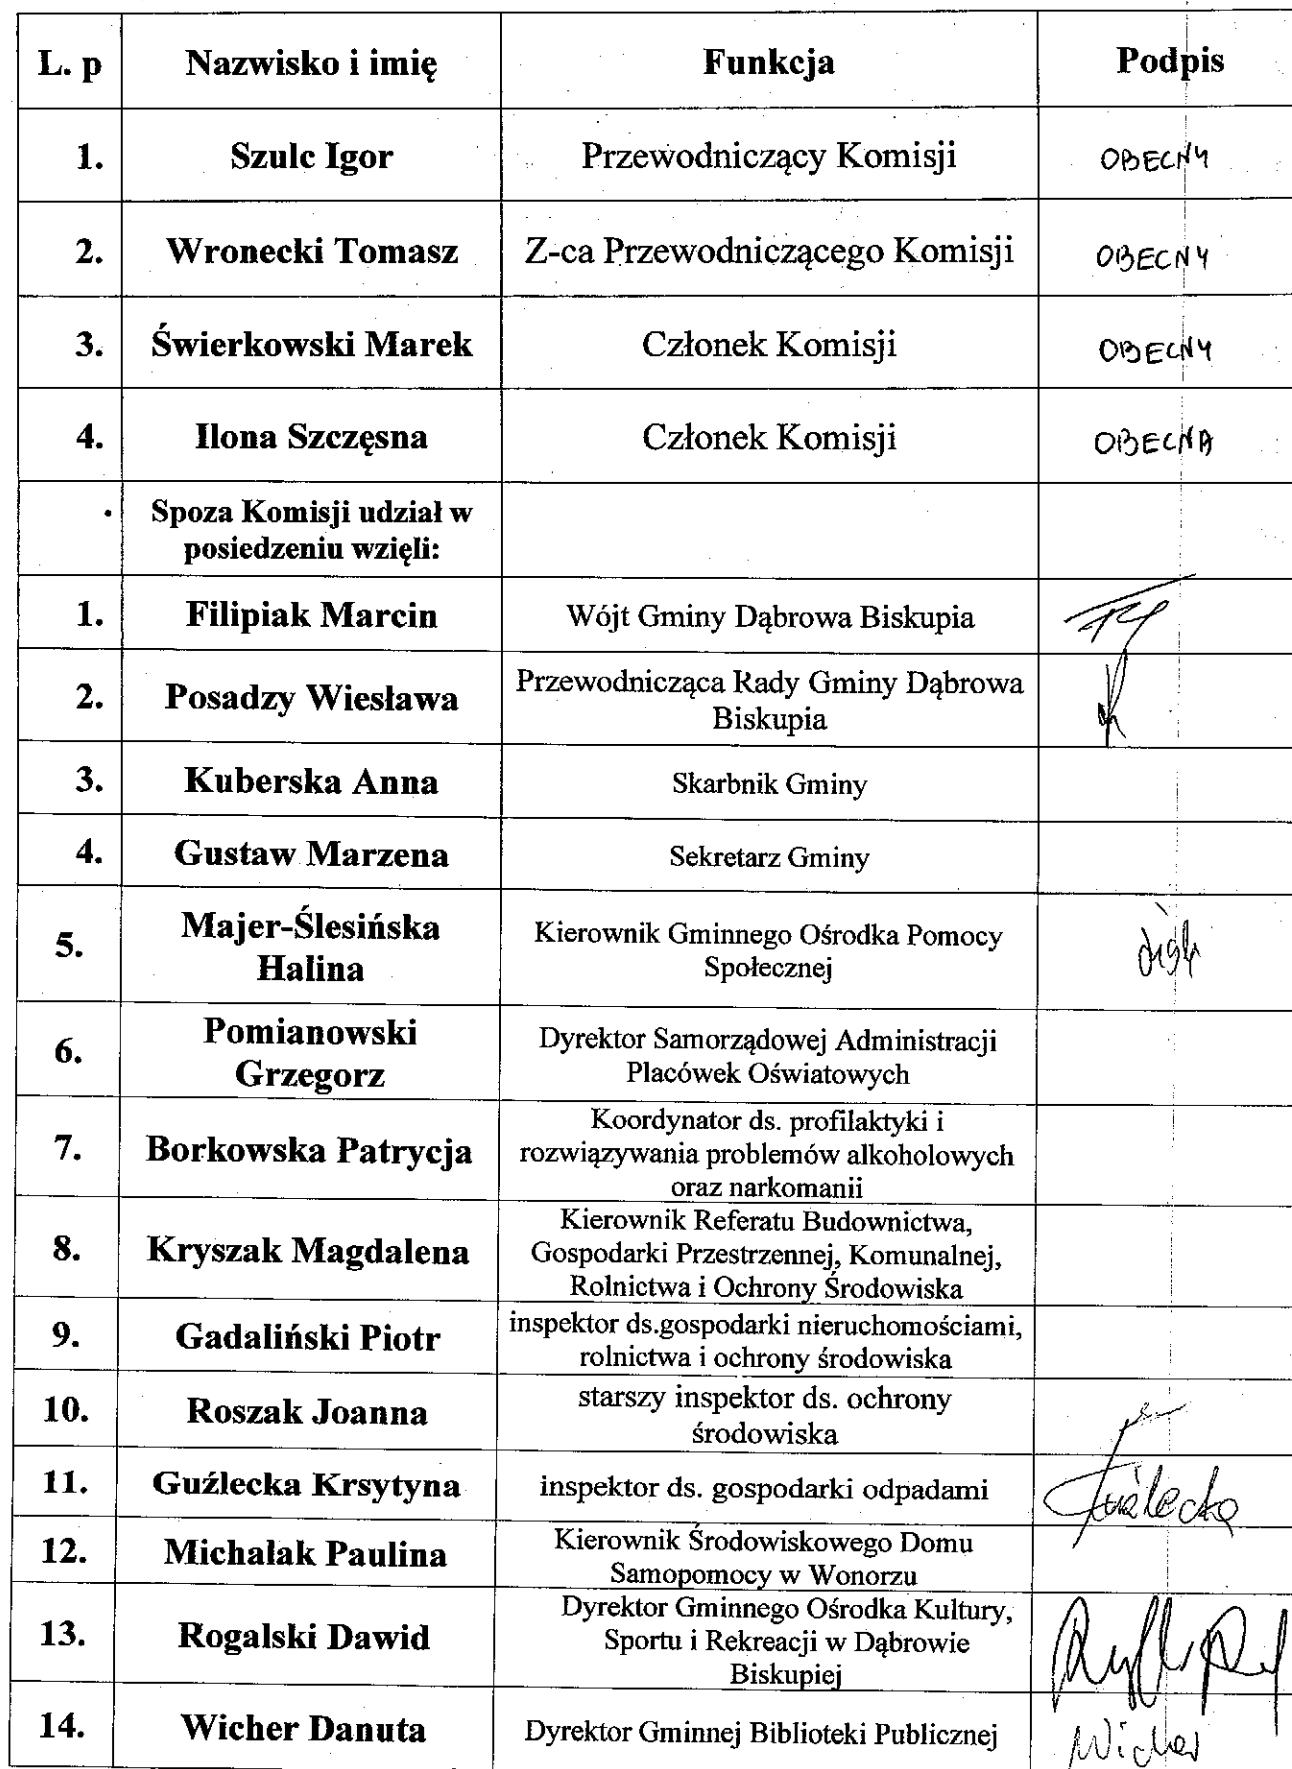 L. p Nazwisko i imię Funkcja Podpis
1. Szulc Igor Przewodniczący Komisji OBECNY
2. Wronecki Tomasz Z-ca Przewodniczącego Komisji OBECNY
3. Świerkowski Marek Członek Komisji OBECNY
4. Ilona Szczęsna Członek Komisji OBECNA
Spoza Komisji udział w
posiedzeniu wzięli:
1. Filipiak Marcin Wójt Gminy Dąbrowa Biskupia
2. Posadzy Wiesława Przewodnicząca Rady Gminy Dąbrowa
Biskupia
3. Kuberska Anna Skarbnik Gminy
4. Gustaw Marzena Sekretarz Gminy
5. Majer-Ślesińska
Halina
Kierownik Gminnego Ośrodka Pomocy
Społecznej
6. Pomianowski
Grzegorz
Dyrektor Samorządowej Administracji
Placówek Oświatowych
7. Borkowska Patrycja
Koordynator ds. profilaktyki i
rozwiązywania problemów alkoholowych
oraz narkomanii
8. Kryszak Magdalena
Kierownik Referatu Budownictwa,
Gospodarki Przestrzennej, Komunalnej,
Rolnictwa i Ochrony Środowiska
9. Gadaliński Piotr
inspektor ds.gospodarki nieruchomościami,
rolnictwa i ochrony środowiska
10. Roszak Joanna
starszy inspektor ds. ochrony
środowiska
11. Guźlecka Krsytyna inspektor ds. gospodarki odpadami Guźlecka
12. Michalak Paulina
Kierownik Środowiskowego Domu
Samopomocy w Wonorzu
13. Rogalski Dawid
Dyrektor Gminnego Ośrodka Kultury,
Sportu i Rekreacji w Dąbrowie
Biskupiej
14. Wicher Danuta Dyrektor Gminnej Biblioteki Publicznej Wicher